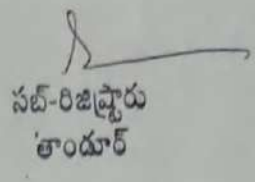 సబ్-రిజిష్ట్రారు
తాండూర్